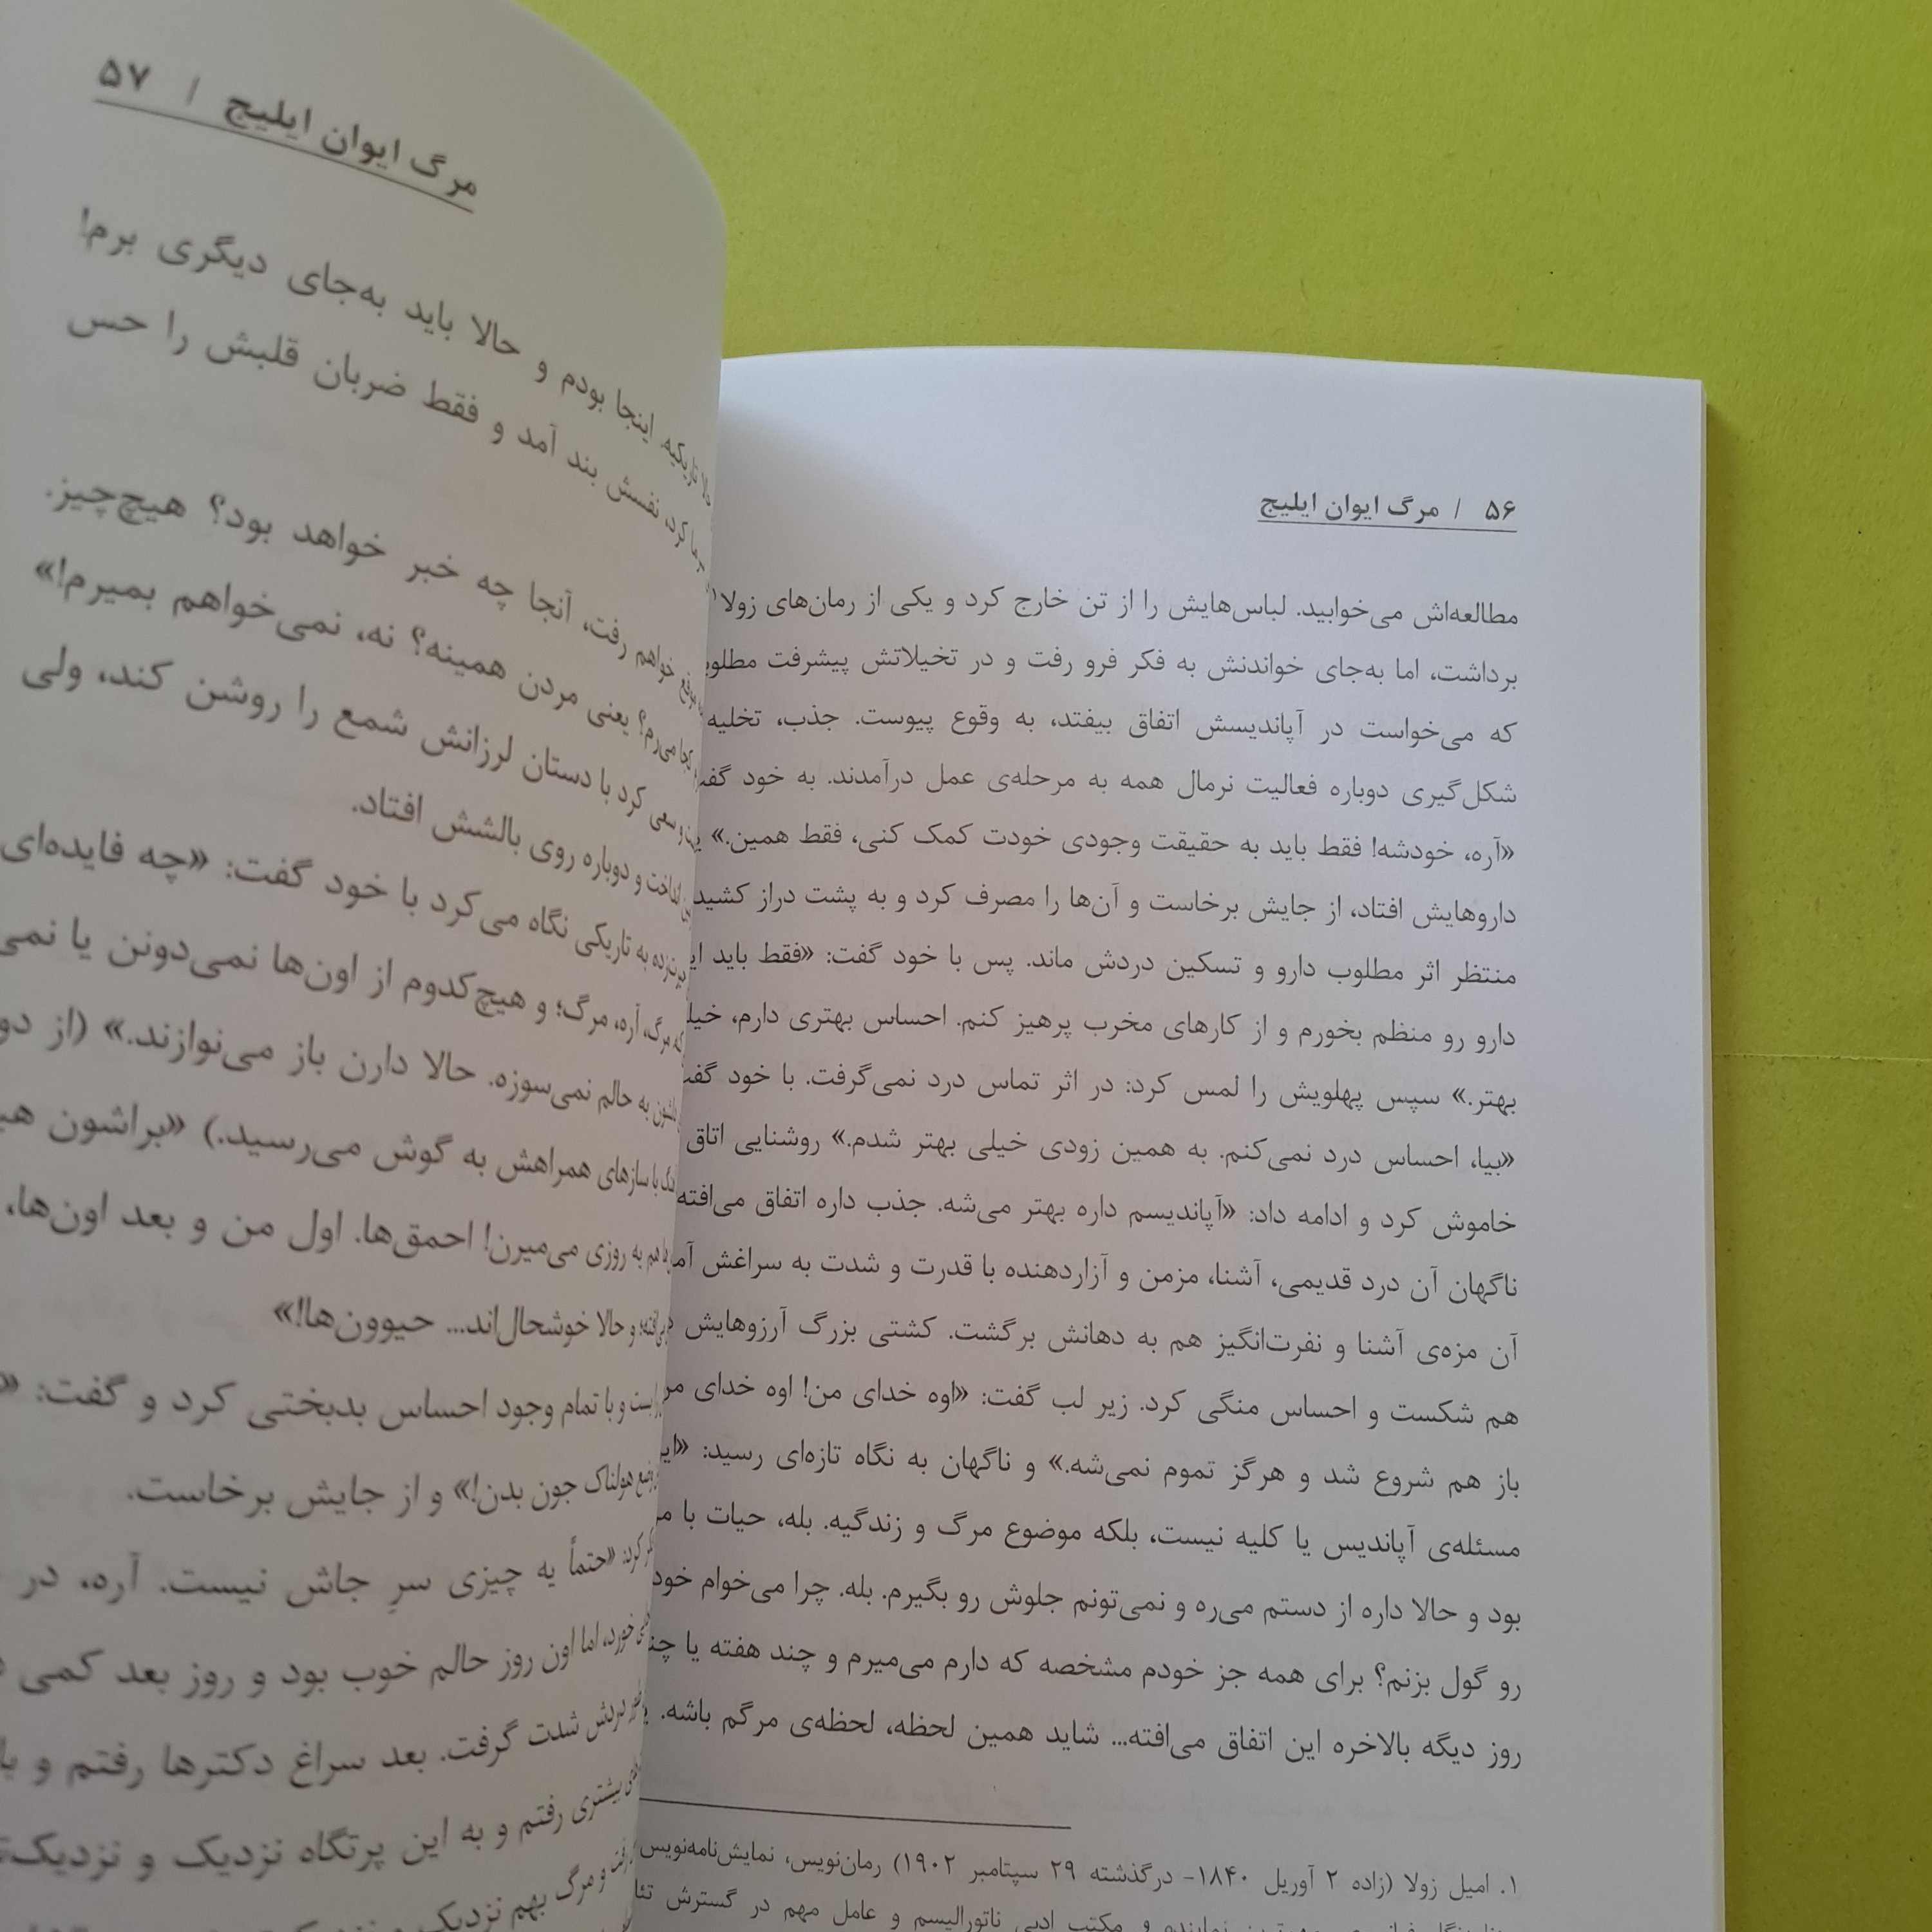 ۵۶ / مرگ ایوان ایلیچ
مطالعه‌اش می‌خوابید. لباس‌هایش را از تن خارج کرد و یکی از رمان‌های زولا۱
برداشت، اما به‌جای خواندنش به فکر فرو رفت و در تخیلاتش پیشرفت
که می‌خواست در آپاندیسش اتفاق بیفتد، به وقوع پیوست. جذب، تخلیه
شکل‌گیری دوباره فعالیت نرمال همه به مرحله‌ی عمل درآمدند. به خود
«آره، خودشه! فقط باید به حقیقت وجودی خودت کمک کنی، فقط همین.»
داروهایش افتاد، از جایش برخاست و آن‌ها را مصرف کرد و به پشت دراز کشید
منتظر اثر مطلوب دارو و تسکین دردش ماند. پس با خود گفت: «فقط باید
دارو رو منظم بخورم و از کارهای مخرب پرهیز کنم. احساس بهتری دارم،
بهتر.» سپس پهلویش را لمس کرد: در اثر تماس درد نمی‌گرفت. با خود
«بیا، احساس درد نمی‌کنم. به همین زودی خیلی بهتر شدم.» روشنایی اتاق
خاموش کرد و ادامه داد: «آپاندیسم داره بهتر می‌شه. جذب داره اتفاق می‌افته
ناگهان آن درد قدیمی، آشنا، مزمن و آزاردهنده با قدرت و شدت به سراغش
آن مزه‌ی آشنا و نفرت‌انگیز هم به دهانش برگشت. کشتی بزرگ آرزوهایش
هم شکست و احساس منگی کرد. زیر لب گفت: «اوه خدای من! اوه خدای
باز هم شروع شد و هرگز تموم نمی‌شه.» و ناگهان به نگاه تازه‌ای رسید:
مسئله‌ی آپاندیس یا کلیه نیست، بلکه موضوع مرگ و زندگیه. بله، حیات با
بود و حالا داره از دستم می‌ره و نمی‌تونم جلوش رو بگیرم. بله. چرا می‌خوام
رو گول بزنم؟ برای همه جز خودم مشخصه که دارم می‌میرم و چند هفته یا
روز دیگه بالاخره این اتفاق می‌افته... شاید همین لحظه، لحظه‌ی مرگم باشه.
۱. امیل زولا (زاده ۲ آوریل ۱۸۴۰- درگذشته ۲۹ سپتامبر ۱۹۰۲) رمان‌نویس، نمایش‌نامه‌نویس
نماینده و مکتب ادبی ناتورالیسم و عامل مهم در گسترش
مرگ ایوان ایلیچ / ۵۷
حالا تاریکیه. اینجا بودم و حالا باید به‌جای دیگری برم!
کرد، نفسش بند آمد و فقط ضربان قلبش را حس
خواهم رفت، آنجا چه خبر خواهد بود؟ هیچ‌چیز.
کجا می‌رم؟ یعنی مردن همینه؟ نه، نمی‌خواهم بمیرم!»
و سعی کرد با دستان لرزانش شمع را روشن کند، ولی
انداخت و دوباره روی بالشش افتاد.
به تاریکی نگاه می‌کرد با خود گفت: «چه فایده‌ای
مرگ، آره، مرگ؛ و هیچ‌کدوم از اون‌ها نمی‌دونن یا
به حالم نمی‌سوزه. حالا دارن باز می‌نوازند.» (از
با سازهای همراهش به گوش می‌رسید.) «براشون
هم یه روزی می‌میرن! احمق‌ها. اول من و بعد اون‌ها،
و حالا خوشحال‌اند... حیوون‌ها!»
و با تمام وجود احساس بدبختی کرد و گفت:
هولناک جون بدن!» و از جایش برخاست.
کرد: «حتماً یه چیزی سرِ جاش نیست. آره، در
اما اون روز حالم خوب بود و روز بعد کمی
شدت گرفت. بعد سراغ دکترها رفتم و
بیشتری رفتم و به این پرتگاه نزدیک و
و مرگ بهم نزدیک